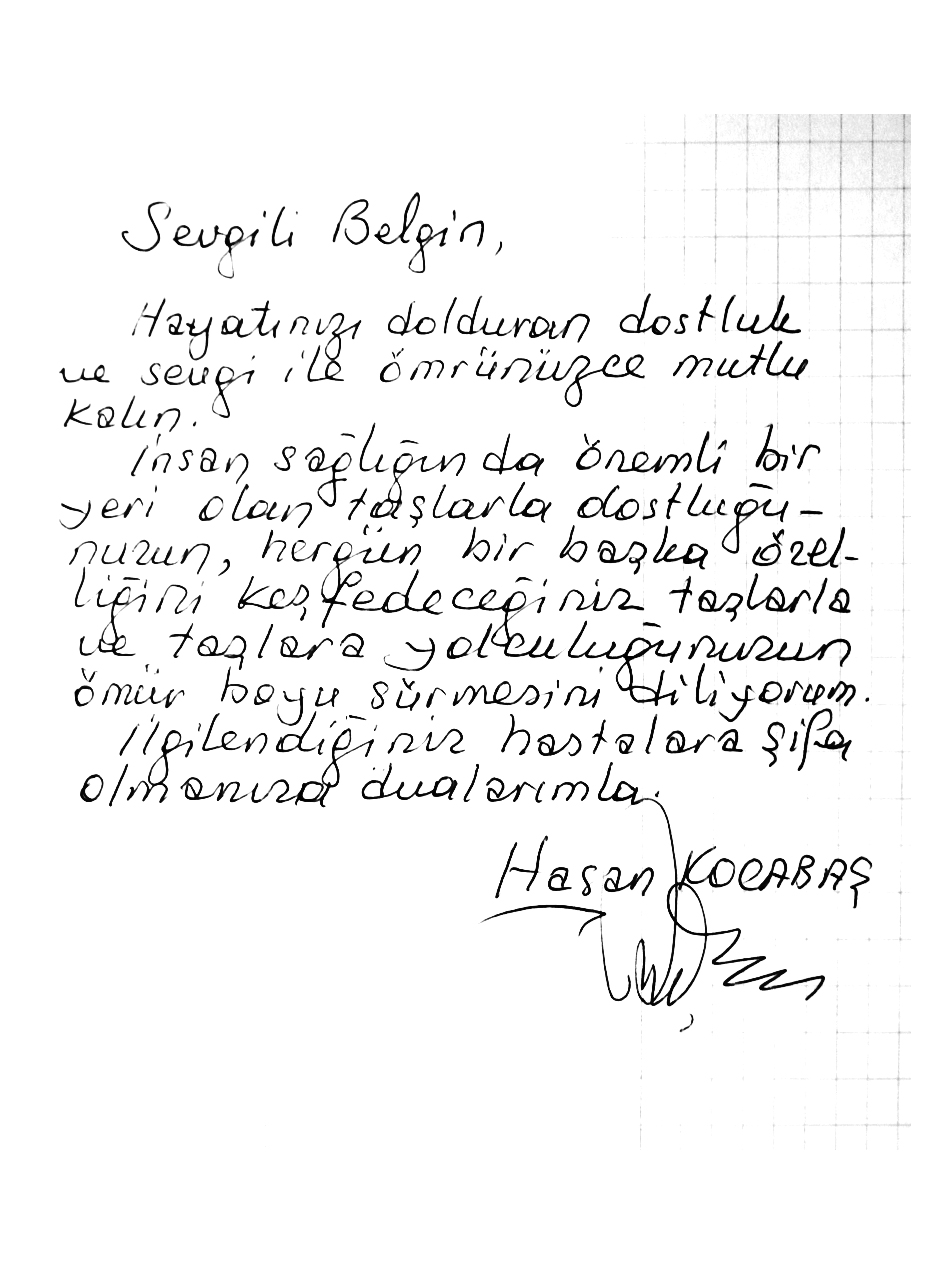 Sevgili Belgin,
Hayatınızı dolduran dostluk
ve sevgi ile ömrünüzce mutlu
kalın.
İnsan sağlığında önemli bir
yeri olan taşlarla dostluğu-
nuzun, hergün bir başka özel-
liğini keşfedeceğiniz taşlarla
ve taşlara yolculuğunuzun
ömür boyu sürmesini diliyorum.
İlgilendiğiniz hastalara şifa
olmanıza dualarımla.
Hasan KOCABAŞ